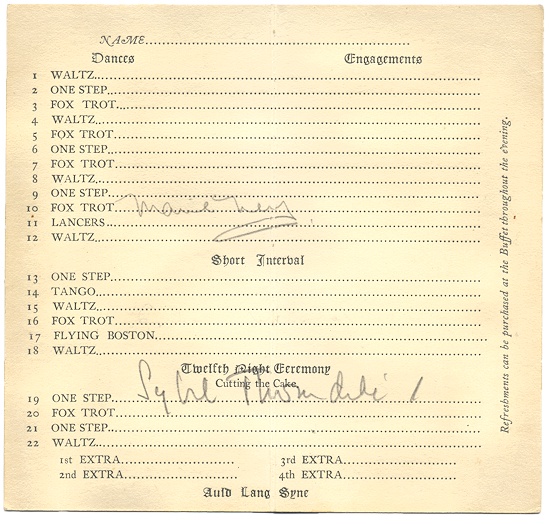 NAME
Dances Engagements
1 WALTZ
2 ONE STEP
3 FOX TROT
4 WALTZ
5 FOX TROT
6 ONE STEP
7 FOX TROT
8 WALTZ
9 ONE STEP
10 FOX TROT
11 LANCERS
12 WALTZ
Short Interval
13 ONE STEP
14 TANGO
15 WALTZ
16 FOX TROT
17 FLYING BOSTON
18 WALTZ
Twelfth Night Ceremony
Cutting the Cake
Sybil Thorndike
19 ONE STEP
20 FOX TROT
21 ONE STEP
22 WALTZ
1st EXTRA 3rd EXTRA
2nd EXTRA 4th EXTRA
Auld Lang Syne
Refreshments can be purchased at the Buffet throughout the evening.